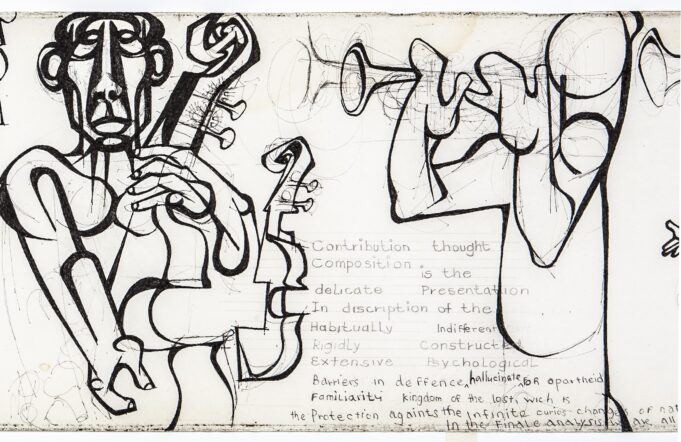 Contribution thought
Composition is the
delicate Presentation
In discription of the
Habitually Indifferent
Rigidly Constructed
Extensive Psychological
Barriers in deffence, hallucinate, OR apartheid
Familiarity kingdom of the lost, wich is
the Protection againts the infinite curies-changes of nat
In the Finale analysis are all